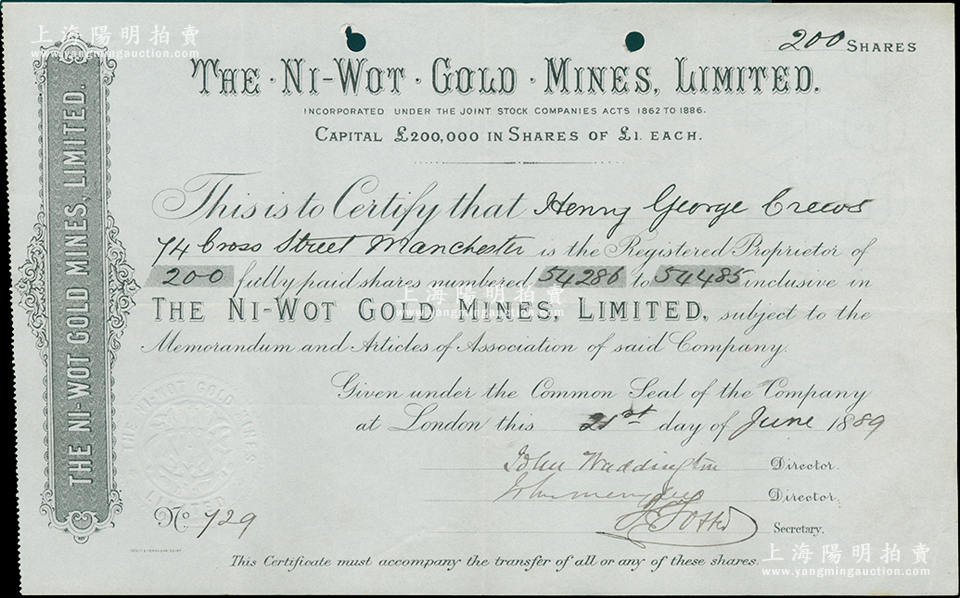 上海陽明拍賣
www.yangmingauction.com
200 SHARES
THE · NI-WOT · GOLD · MINES, LIMITED.
INCORPORATED UNDER THE JOINT STOCK COMPANIES ACTS 1862 TO 1886.
CAPITAL £200,000 IN SHARES OF £1. EACH.
This is to Certify that Henry George Crews
74 Cross Street Manchester is the Registered Proprietor of
200 fully paid shares numbered 54286 to 54485 inclusive in
THE NI-WOT GOLD MINES, LIMITED, subject to the
Memorandum and Articles of Association of said Company.
Given under the Common Seal of the Company
at London this 21st day of June 1889
John Waddington Director.
Director.
Secretary.
No 729
This Certificate must accompany the transfer of all or any of these shares.
THE NI-WOT GOLD MINES, LIMITED.
THE NI-WOT GOLD MINES LIMITED
上海陽明拍賣
www.yangmingauction.com
上海陽明拍賣
www.yangmingauction.com